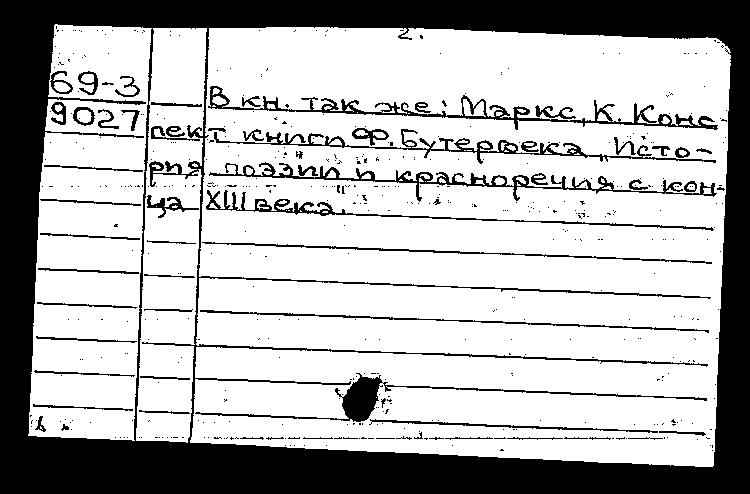 2.
69-3
9027
В кн. так же: Маркс, К. Конс
пект книги Ф. Бутервека „Исто-
рия поэзии и красноречия с кон-
ца XIII века".